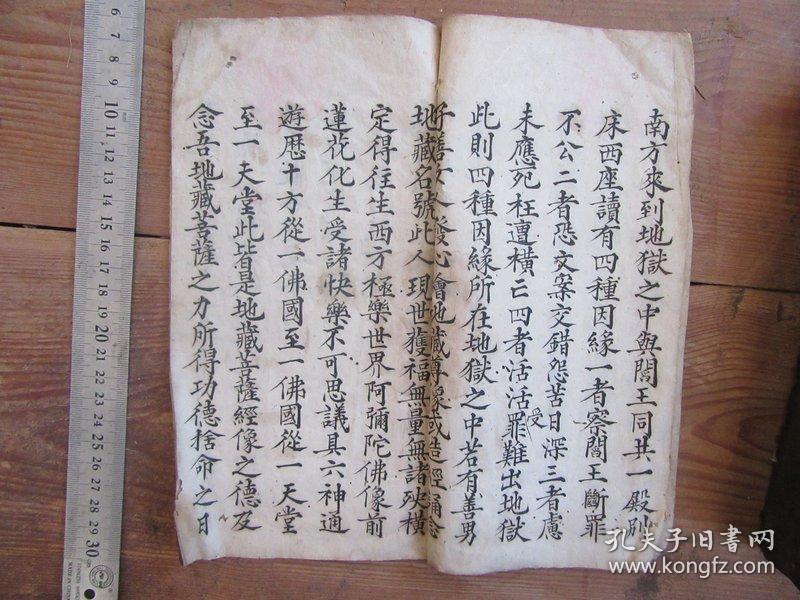 南方來到地獄之中與閻王同共一殿別
床西座讀有四種因緣一者察閻王斷罪
不公二者恐文案交錯怨苦日深三者慮
未應死枉遭橫亡四者活活罪難出地獄
受
此則四種因緣所在地獄之中若有善男
子善女人發心繪地藏尊像或造經誦念
地藏名號此人現世獲福無量無諸殃橫
定得往生西方極樂世界阿彌陀佛像前
蓮花化生受諸快樂不可思議具六神通
遊歷十方從一佛國至一佛國從一天堂
至一天堂此皆是地藏菩薩經像之德及
念吾地藏菩薩之力所得功德捨命之日
孔夫子旧书网
www.kongfz.com